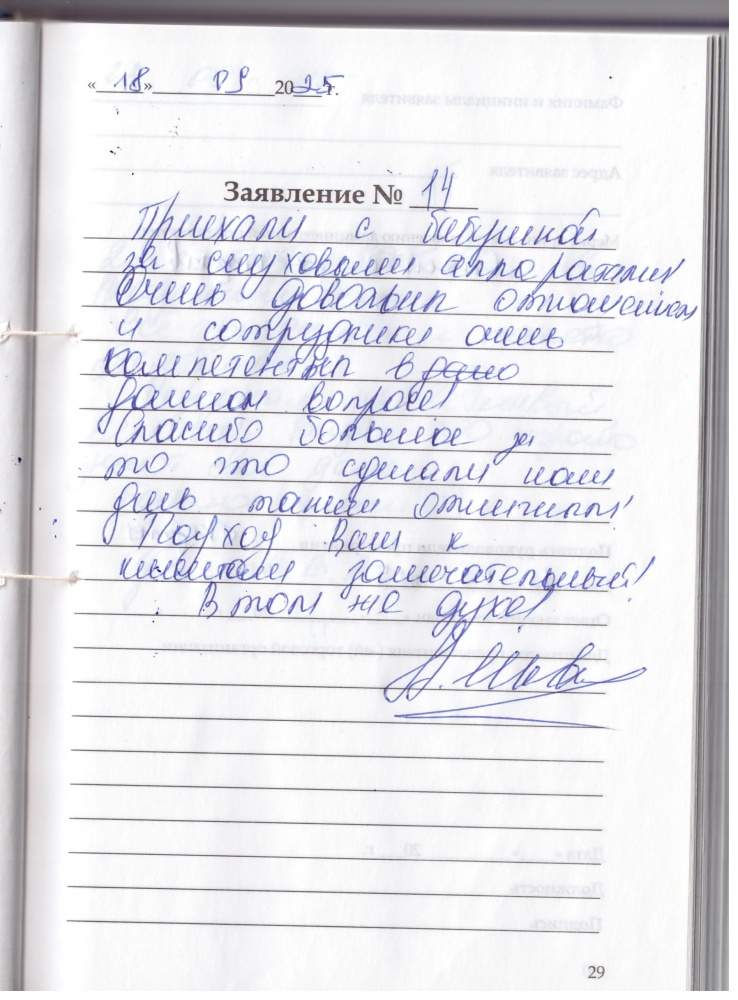 « 18 » 09 2025 г.
Заявление № 14
Приехали с бабушкой
за слуховыми аппаратами
Очень довольны отношением
и сотрудники очень
компетентны в
данном вопросе!
Спасибо большое за
то что сделали наш
день таким отличным!
Подход Ваш к
клиентам замечательный!
В том же духе!
29